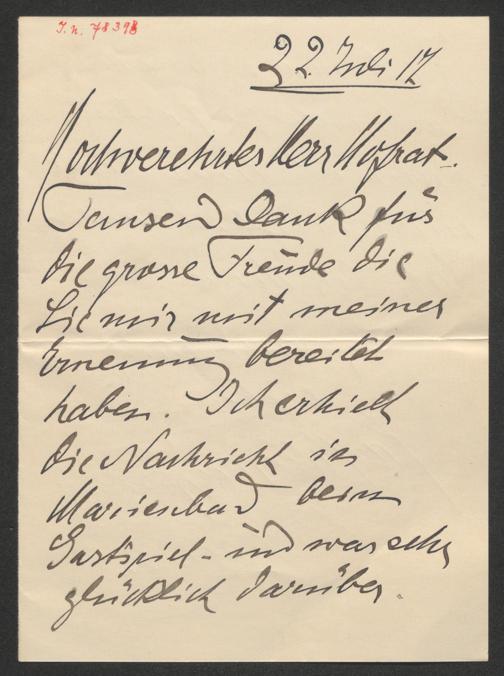 J.n. 78398
22. Juli 17
Hochverehrter Herr Hofrat.
Tausend Dank für
die grosse Freude die
Sie mir mit meiner
Ernennung bereitet
haben. Ich erhielt
die Nachricht in
Marienbad beim
Gastspiel - und war sehr
glücklich darüber.